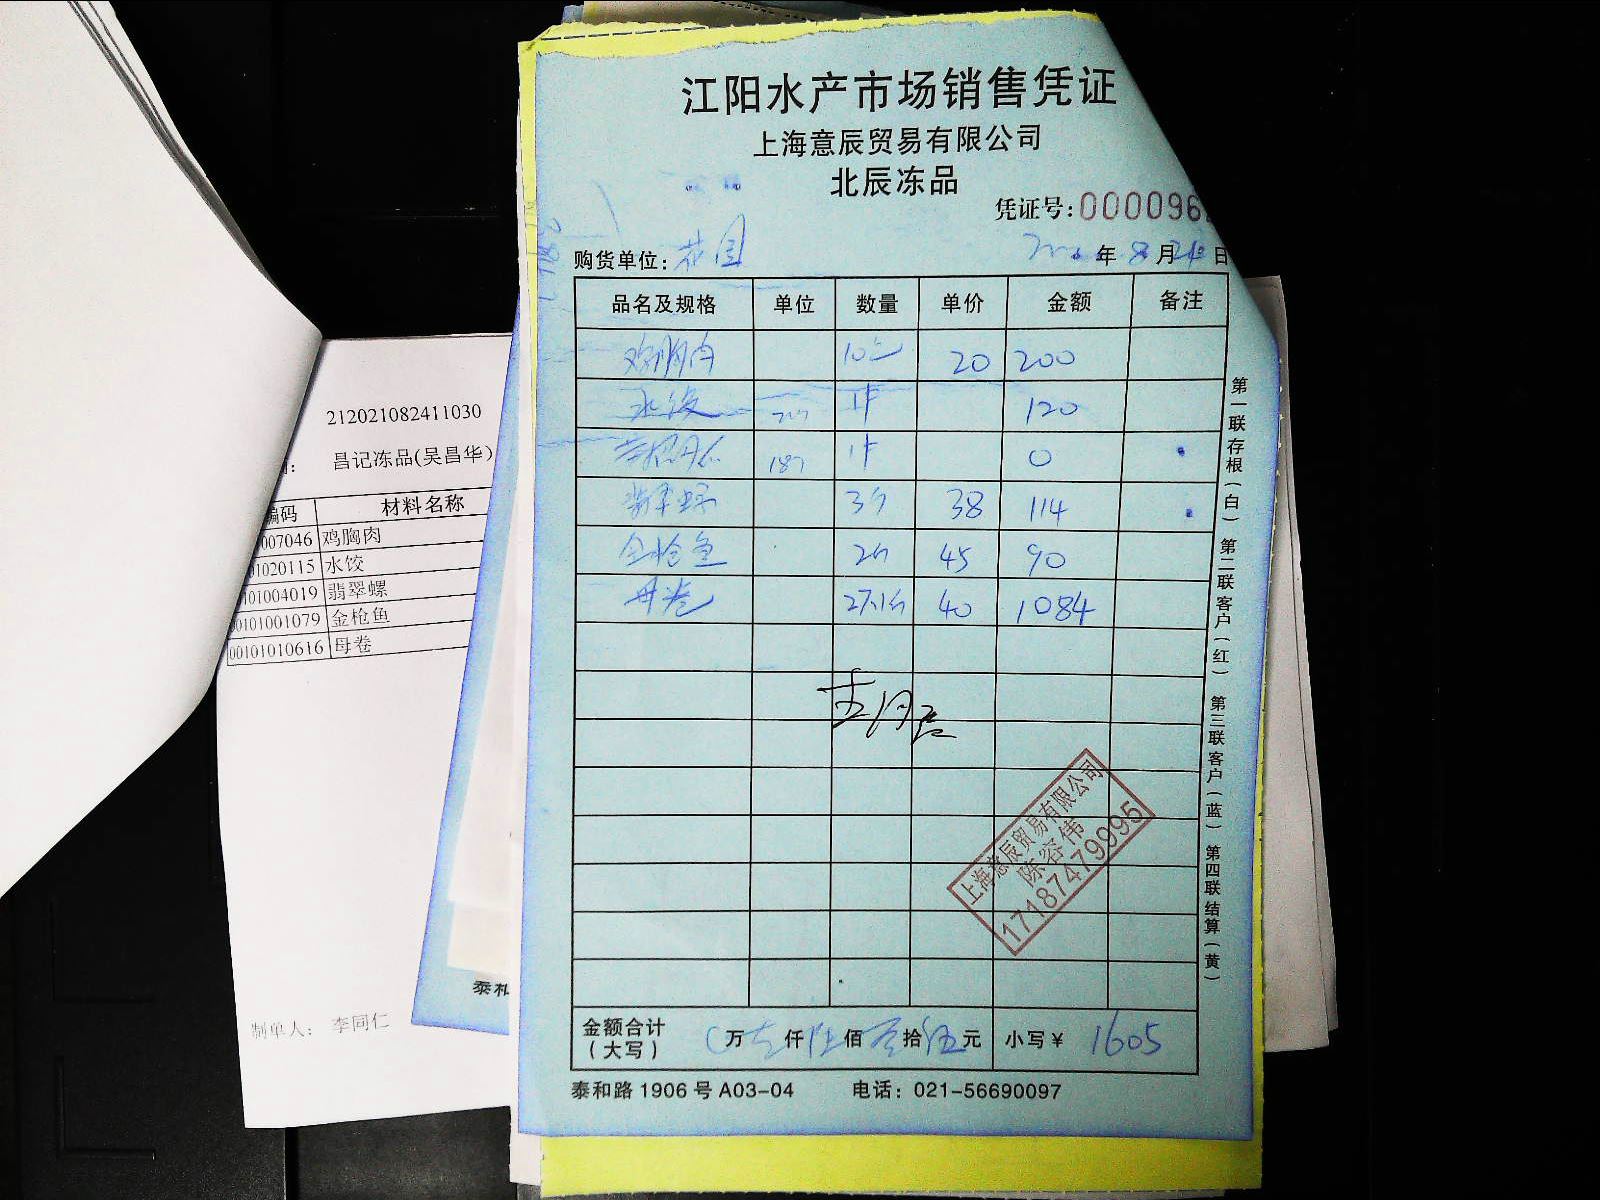 江阳水产市场销售凭证
上海意辰贸易有限公司
北辰冻品
凭证号:000096
购货单位: 花园 年 8 月 24 日
品名及规格 单位 数量 单价 金额 备注
鸡胸肉 10 20 200
水饺 1件 120
187 1件 0
翡翠螺 3 38 114
金枪鱼 2 45 90
母卷 27.1 40 1084
上海意辰贸易有限公司
陈容伟
17187479995
金额合计（大写） 万 仟 陆 佰 零 拾 伍 元 小写￥ 1605
泰和路 1906 号 A03-04 电话: 021-56690097
第一联存根(白) 第二联客户(红) 第三联客户(蓝) 第四联结算(黄)
212021082411030
昌记冻品(吴昌华)
编码 材料名称
007046 鸡胸肉
01020115 水饺
0101004019 翡翠螺
00101001079 金枪鱼
00101010616 母卷
制单人: 李同仁
泰和